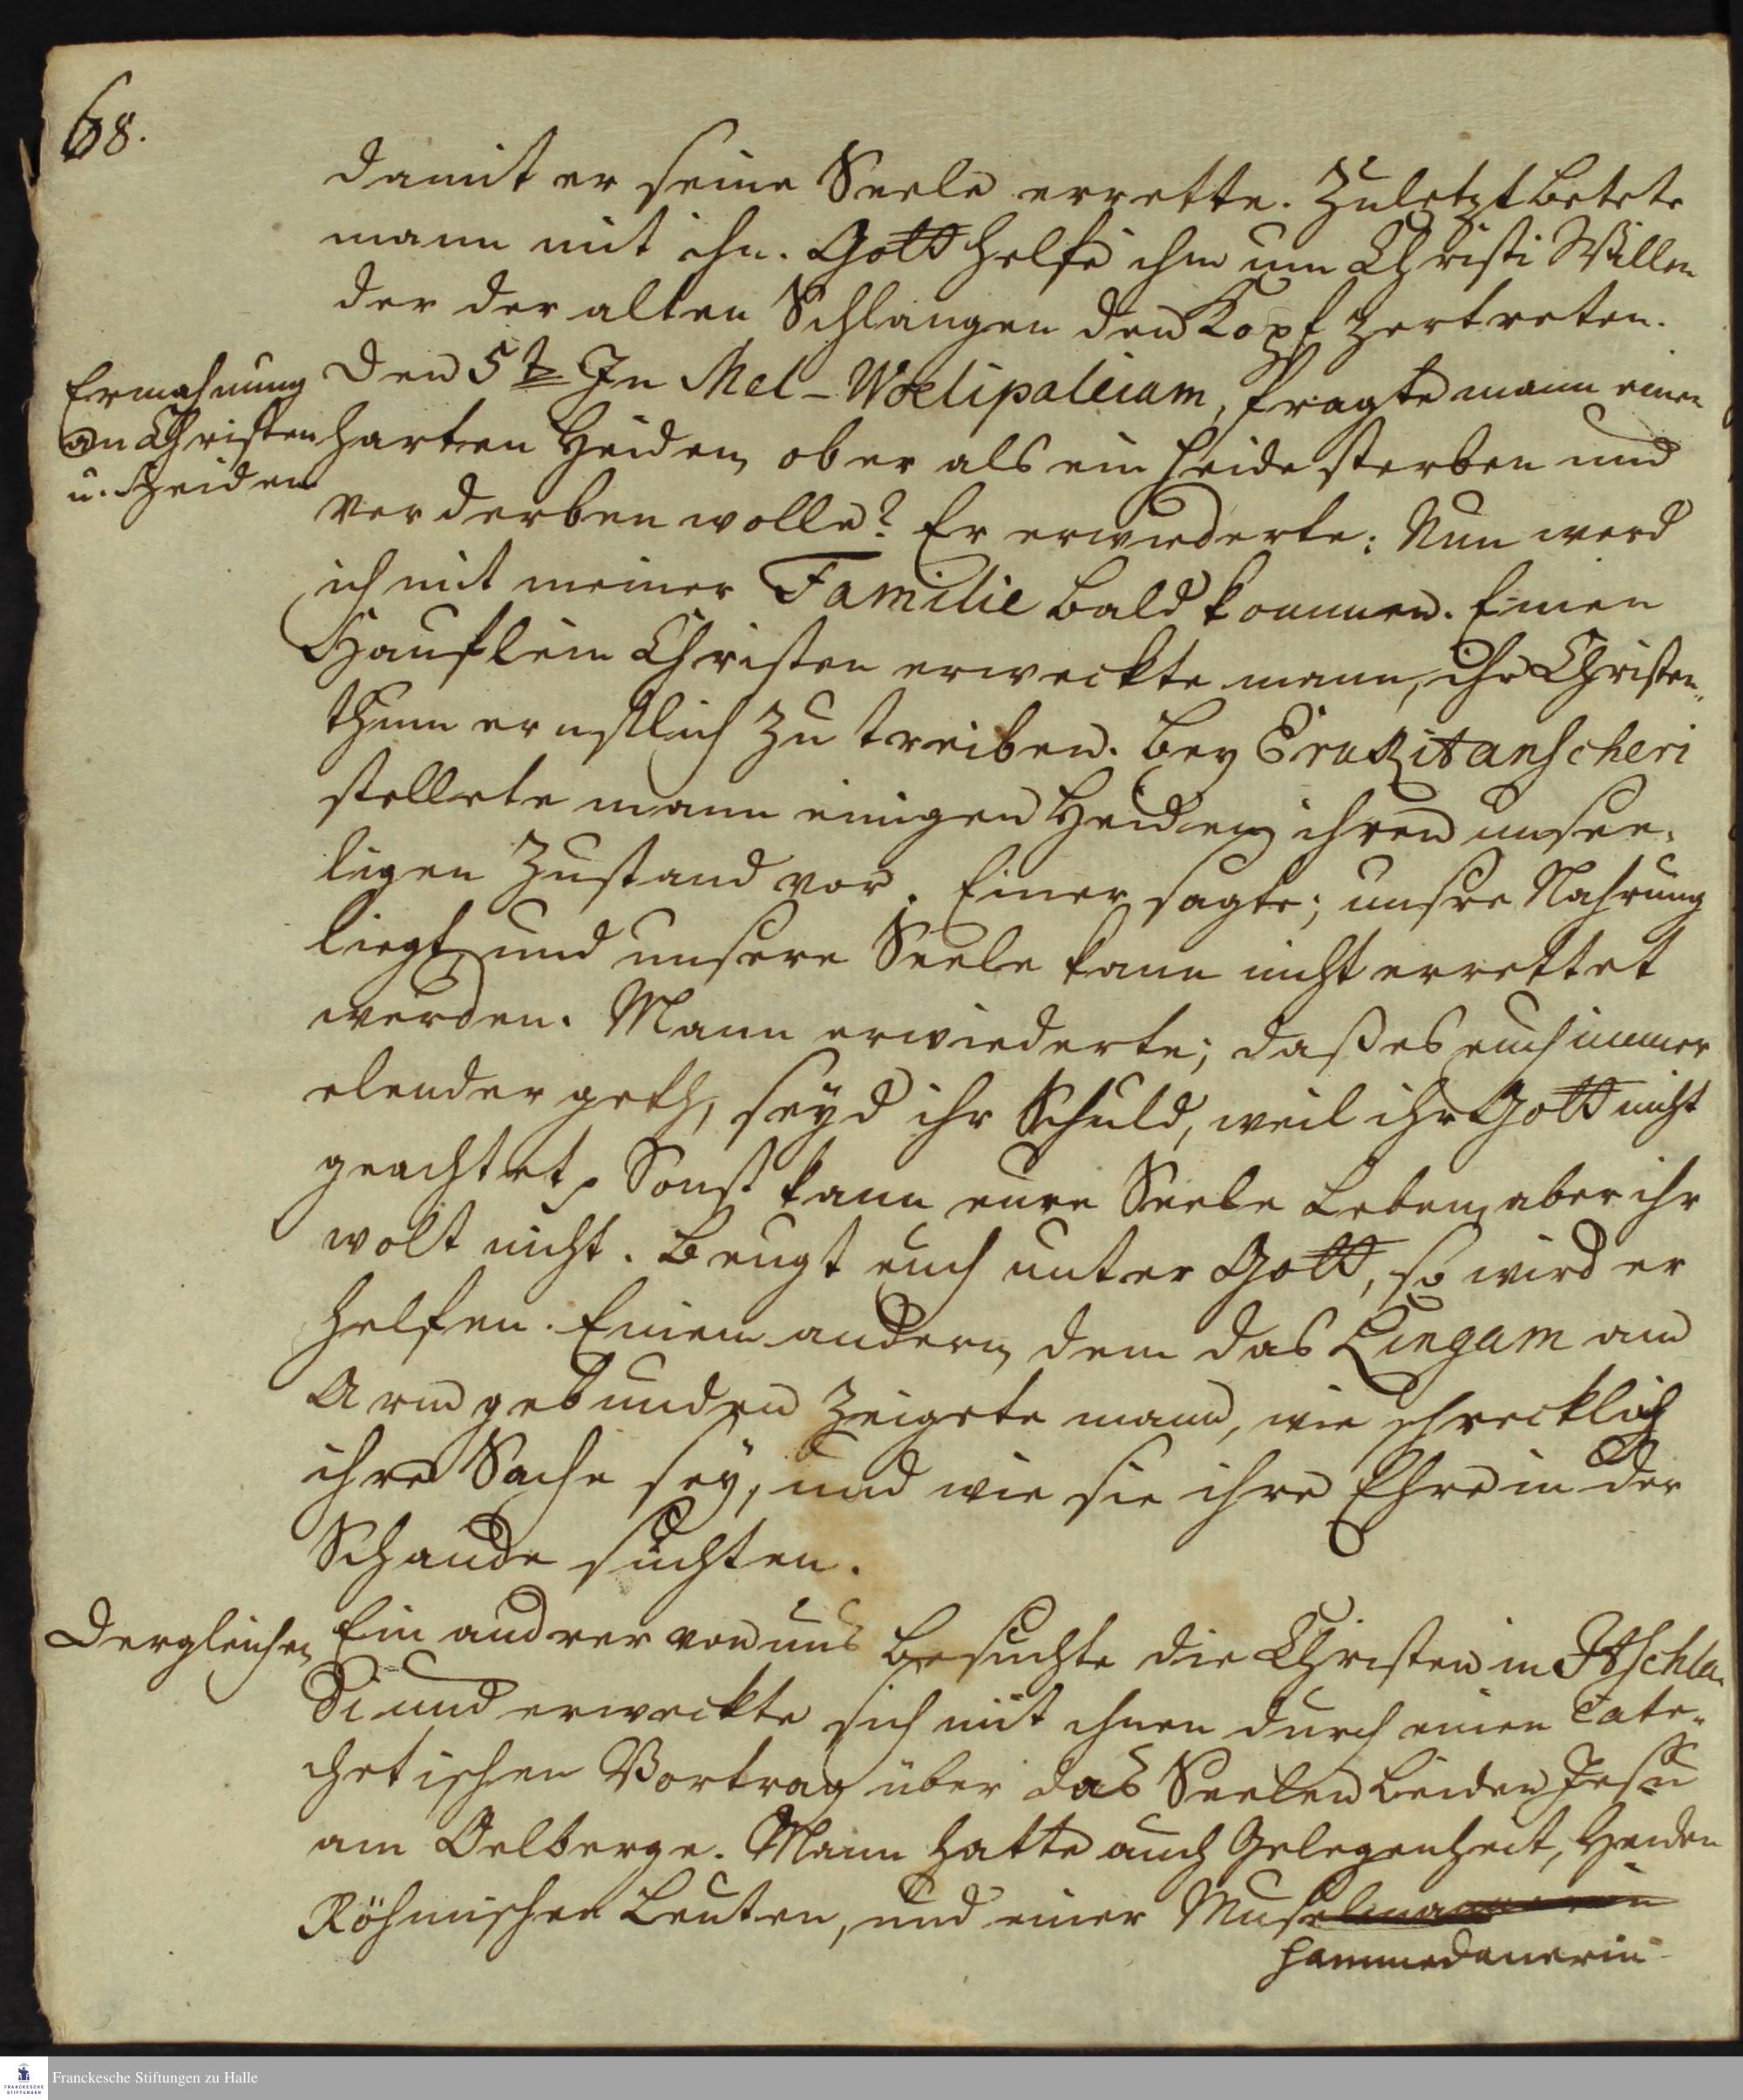 68.
damit er seine Seele errette. Zuletzt betete
mann mit ihn. Gott helfe ihm um Christi Willen
der der alten Schlangen den Kopf zertreten.
Ermahnung
an Christen
u. Heiden
Den 5t In Mel-Woelipaleiam, fragte mann einen
harten Heiden, ob er als ein Heide sterben und
verderben wolle? Er erwiederte: Nun werd
ich mit meiner Familie bald kommen. Einen
Häuflein Christen erweckte mann, ihr Christen„
thum ernstlich zu treiben. Bey Erukitanscheri
stellete mann einigen Heiden ihren unsee„
ligen Zustand vor. Einer sagte; unsre Nahrung
liegt und unsere Seele kann nicht errettet
werden. Mann erwiederte; daß es euch immer
elender geth, seyd ihr Schuld, weil ihr Gott nicht
geachtet, Sonst kann eure Seele Leben, aber ihr
wolt nicht. Beugt euch unter Gott, so wird er
helfen. Einem andern, dem das Lingam am
Arm gebunden zeigete mann, wie schrecklich
ihre Sache sey, und wie sie ihre Ehre in der
Schande suchten.
Dergleichen
Ein andrer von uns besuchte die Christen in Itschla„
di und erweckte sich mit ihnen durch einen Cate„
chetischen Vortrag über das Seelen Leiden Jesu
am Oelberge. Mann hatte auch Gelegenheit, Heiden
Röhmischen Leuten, und einer Muselmannin
hammedanerin
Franckesche Stiftungen zu Halle
FRANCKESCHE
STIFTUNGEN